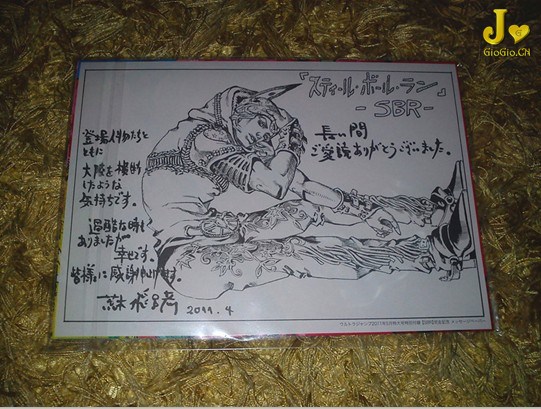 J
GioGio.CN
『スティール・ボール・ラン』
-SBR-
長い間
ご愛読ありがとうございました。
登場人物たちと
ともに
大陸を横断
したような
気持ちです。
過酷な時も
ありましたが
幸せです。
皆様に感謝します。
荒木飛呂彦
2011.4